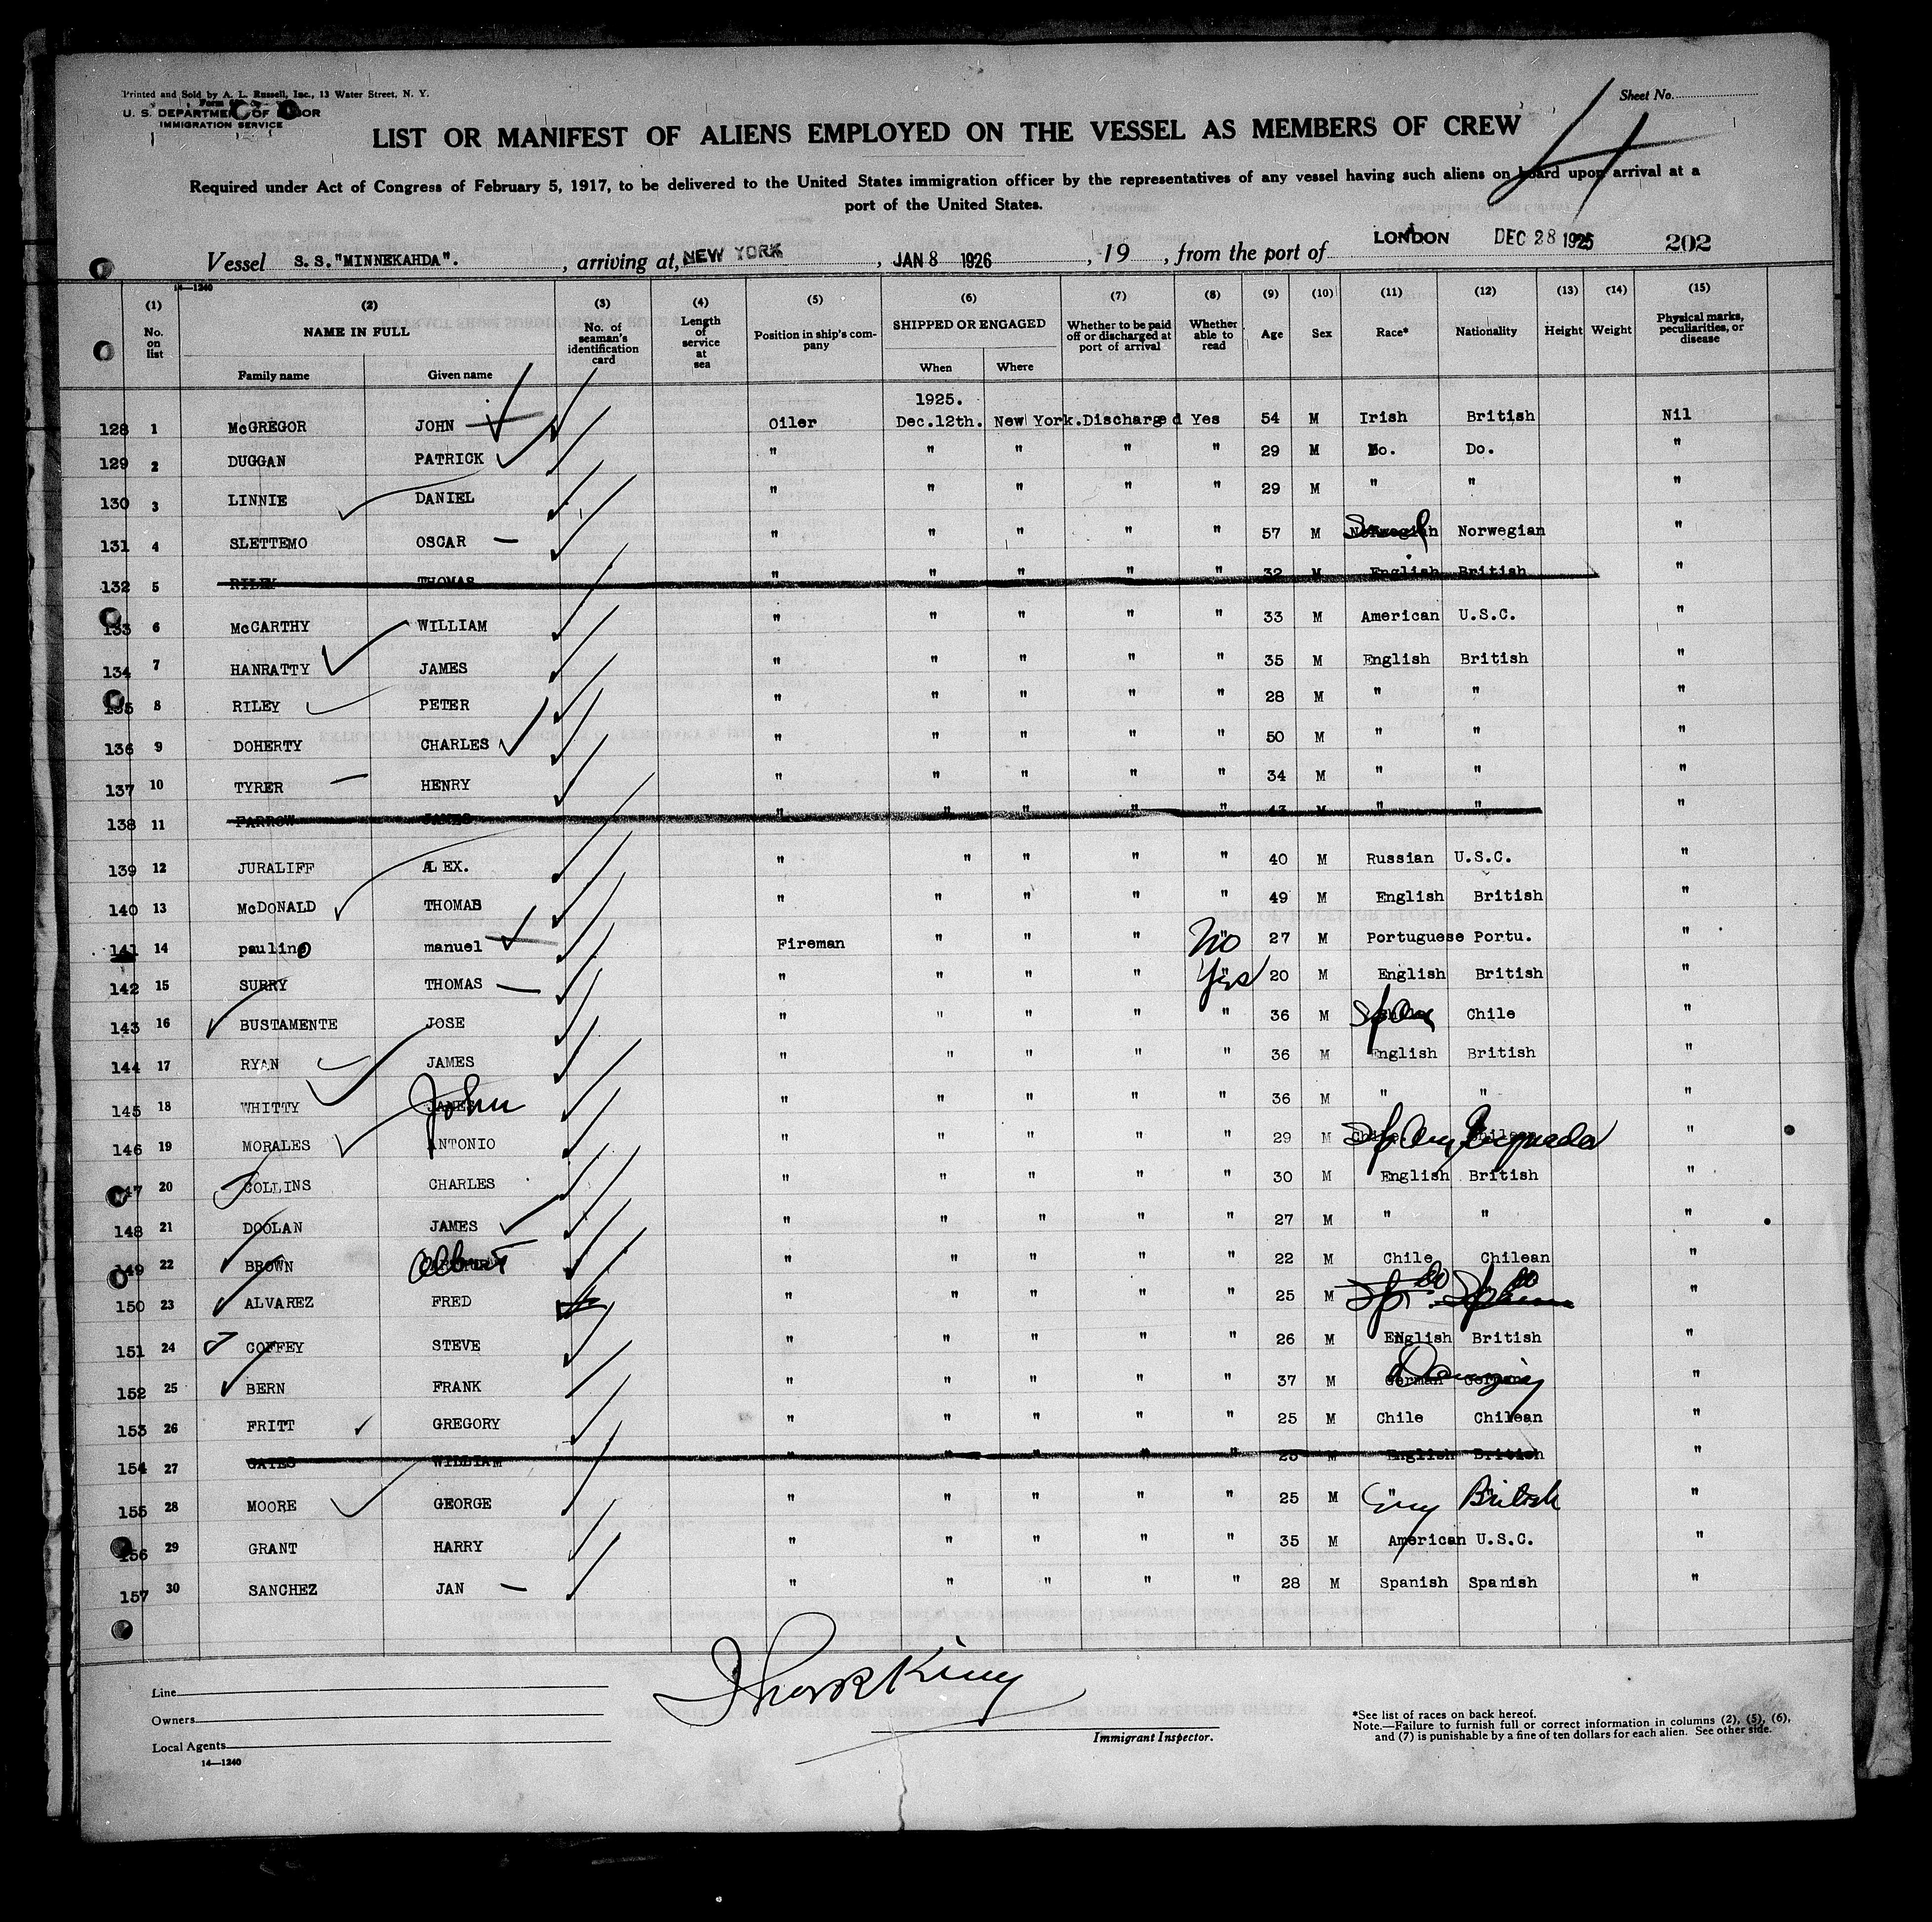 Printed and Sold by A. L. Russell, Inc., 13 Water Street, N. Y.
Sheet No.
U. S. DEPARTMENT OF LABOR
IMMIGRATION SERVICE
4
LIST OR MANIFEST OF ALIENS EMPLOYED ON THE VESSEL AS MEMBERS OF CREW
Required under Act of Congress of February 5, 1917, to be delivered to the United States immigration officer by the representatives of any vessel having such aliens on board upon arrival at a
port of the United States.
Vessel S.S."MINNEKAHDA". , arriving at, NEW YORK , JAN 8 1926 , 19 , from the port of LONDON DEC 28 1925 202
14—1240
(1) (2) (3) (4) (5) (6) (7) (8) (9) (10) (11) (12) (13) (14) (15)
No. on list NAME IN FULL Family name Given name No. of seaman's identification card Length of service at sea Position in ship's company SHIPPED OR ENGAGED When Where Whether to be paid off or discharged at port of arrival Whether able to read Age Sex Race* Nationality Height Weight Physical marks, peculiarities, or disease
1925.
128 1 McGREGOR JOHN Oiler Dec.12th. New York. Discharged Yes 54 M Irish British Nil
129 2 DUGGAN PATRICK " " " " " 29 M Do. Do. "
130 3 LINNIE DANIEL " " " " " 29 M " " "
131 4 SLETTEMO OSCAR " " " " " 57 M Norwegian Scand Norwegian "
132 5 RILEY THOMAS " " " " " 32 M English British "
133 6 McCARTHY WILLIAM " " " " " 33 M American U.S.C. "
134 7 HANRATTY JAMES " " " " " 35 M English British "
135 8 RILEY PETER " " " " " 28 M " " "
136 9 DOHERTY CHARLES " " " " " 50 M " " "
137 10 TYRER HENRY " " " " " 34 M " " "
138 11 FARROW JAMES " " " " " 43 M " " "
139 12 JURALIFF ALEX. " " " " " 40 M Russian U.S.C. "
140 13 McDONALD THOMAS " " " " " 49 M English British "
141 14 paulino manuel Fireman " " " No 27 M Portuguese Portu. "
142 15 SURRY THOMAS " " " " Yes 20 M English British "
143 16 BUSTAMENTE JOSE " " " " " 36 M Span Chile "
144 17 RYAN JAMES " " " " " 36 M English British "
145 18 WHITTY JAMES John " " " " " 36 M " " "
146 19 MORALES ANTONIO " " " " " 29 M Chile Chilean "
147 20 COLLINS CHARLES " " " " " 30 M English British "
148 21 DOOLAN JAMES " " " " " 27 M " " "
149 22 BROWN Albert " " " " " 22 M Chile Chilean "
150 23 ALVAREZ FRED " " " " " 25 M Sp. do do "
151 24 COFFEY STEVE " " " " " 26 M ENglish British "
152 25 BERN FRANK " " " " " 37 M German German Danzig "
153 26 FRITT GREGORY " " " " " 25 M Chile Chilean "
154 27 GATES WILLIAM " " " " " 25 M English British "
155 28 MOORE GEORGE " " " " " 25 M Eng British "
156 29 GRANT HARRY " " " " " 35 M American U.S.C. "
157 30 SANCHEZ JAN " " " " " 28 M Spanish Spanish "
Line
Owners
Local Agents
14—1240
Immigrant Inspector.
*See list of races on back hereof.
Note.—Failure to furnish full or correct information in columns (2), (5), (6),
and (7) is punishable by a fine of ten dollars for each alien. See other side.